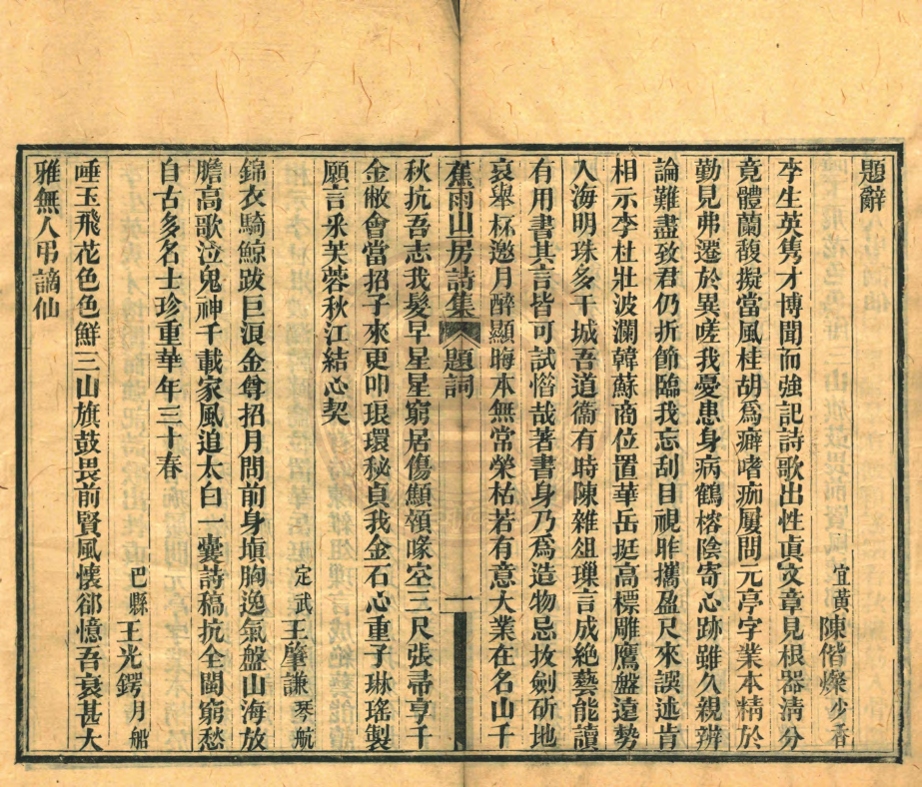 題辭
宜黃陳偕燦少香
李生英雋才博聞而強記詩歌出性真文章見根器清分
竟體蘭馥擬當風桂胡爲癖嗜痂屢問元亭字業本精於
勤見弗遷於異嗟我憂患身病鶴榕陰寄心跡雖久親辨
論難盡致君仍折節臨我忘刮目視昨攜盈尺來譔述肯
相示李杜壯波瀾韓蘇商位置華岳挺高標雕鷹盤遠勢
入海明珠多干城吾道衞有時陳雜俎璅言成絶藝能讀
有用書其言皆可試惜哉著書身乃爲造物忌拔劍斫地
哀舉杯邀月醉顯晦本無常榮枯若有意大業在名山千
蕉雨山房詩集 題詞 一
秋抗吾志我髮早星星窮居傷顦顇喙空三尺張帚享千
金敝會當招子來更叩琅環秘貞我金石心重子琳瑤製
願言釆芙蓉秋江結心契
定武王肇謙琴航
錦衣騎鯨跋巨浪金尊招月問前身塡胸逸氣盤山海放
膽高歌泣鬼神千載家風追太白一囊詩稿抗全閩窮愁
自古多名士珍重華年三十春
巴縣王光鍔月船
唾玉飛花色色鮮三山旗鼓畏前賢風懷郤憶吾衰甚大
雅無人弔謫仙